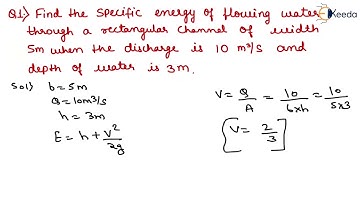 Q1) Find the specific energy of flowing water
through a rectangular channel of width
5m when the discharge is 10 m³/s and
depth of water is 3m.
Sol) b = 5m
Q = 10m³/s
h = 3m
E = h + V²/2g
V = Q/A = 10/b×h = 10/5×3
[V = 2/3]
Keeda